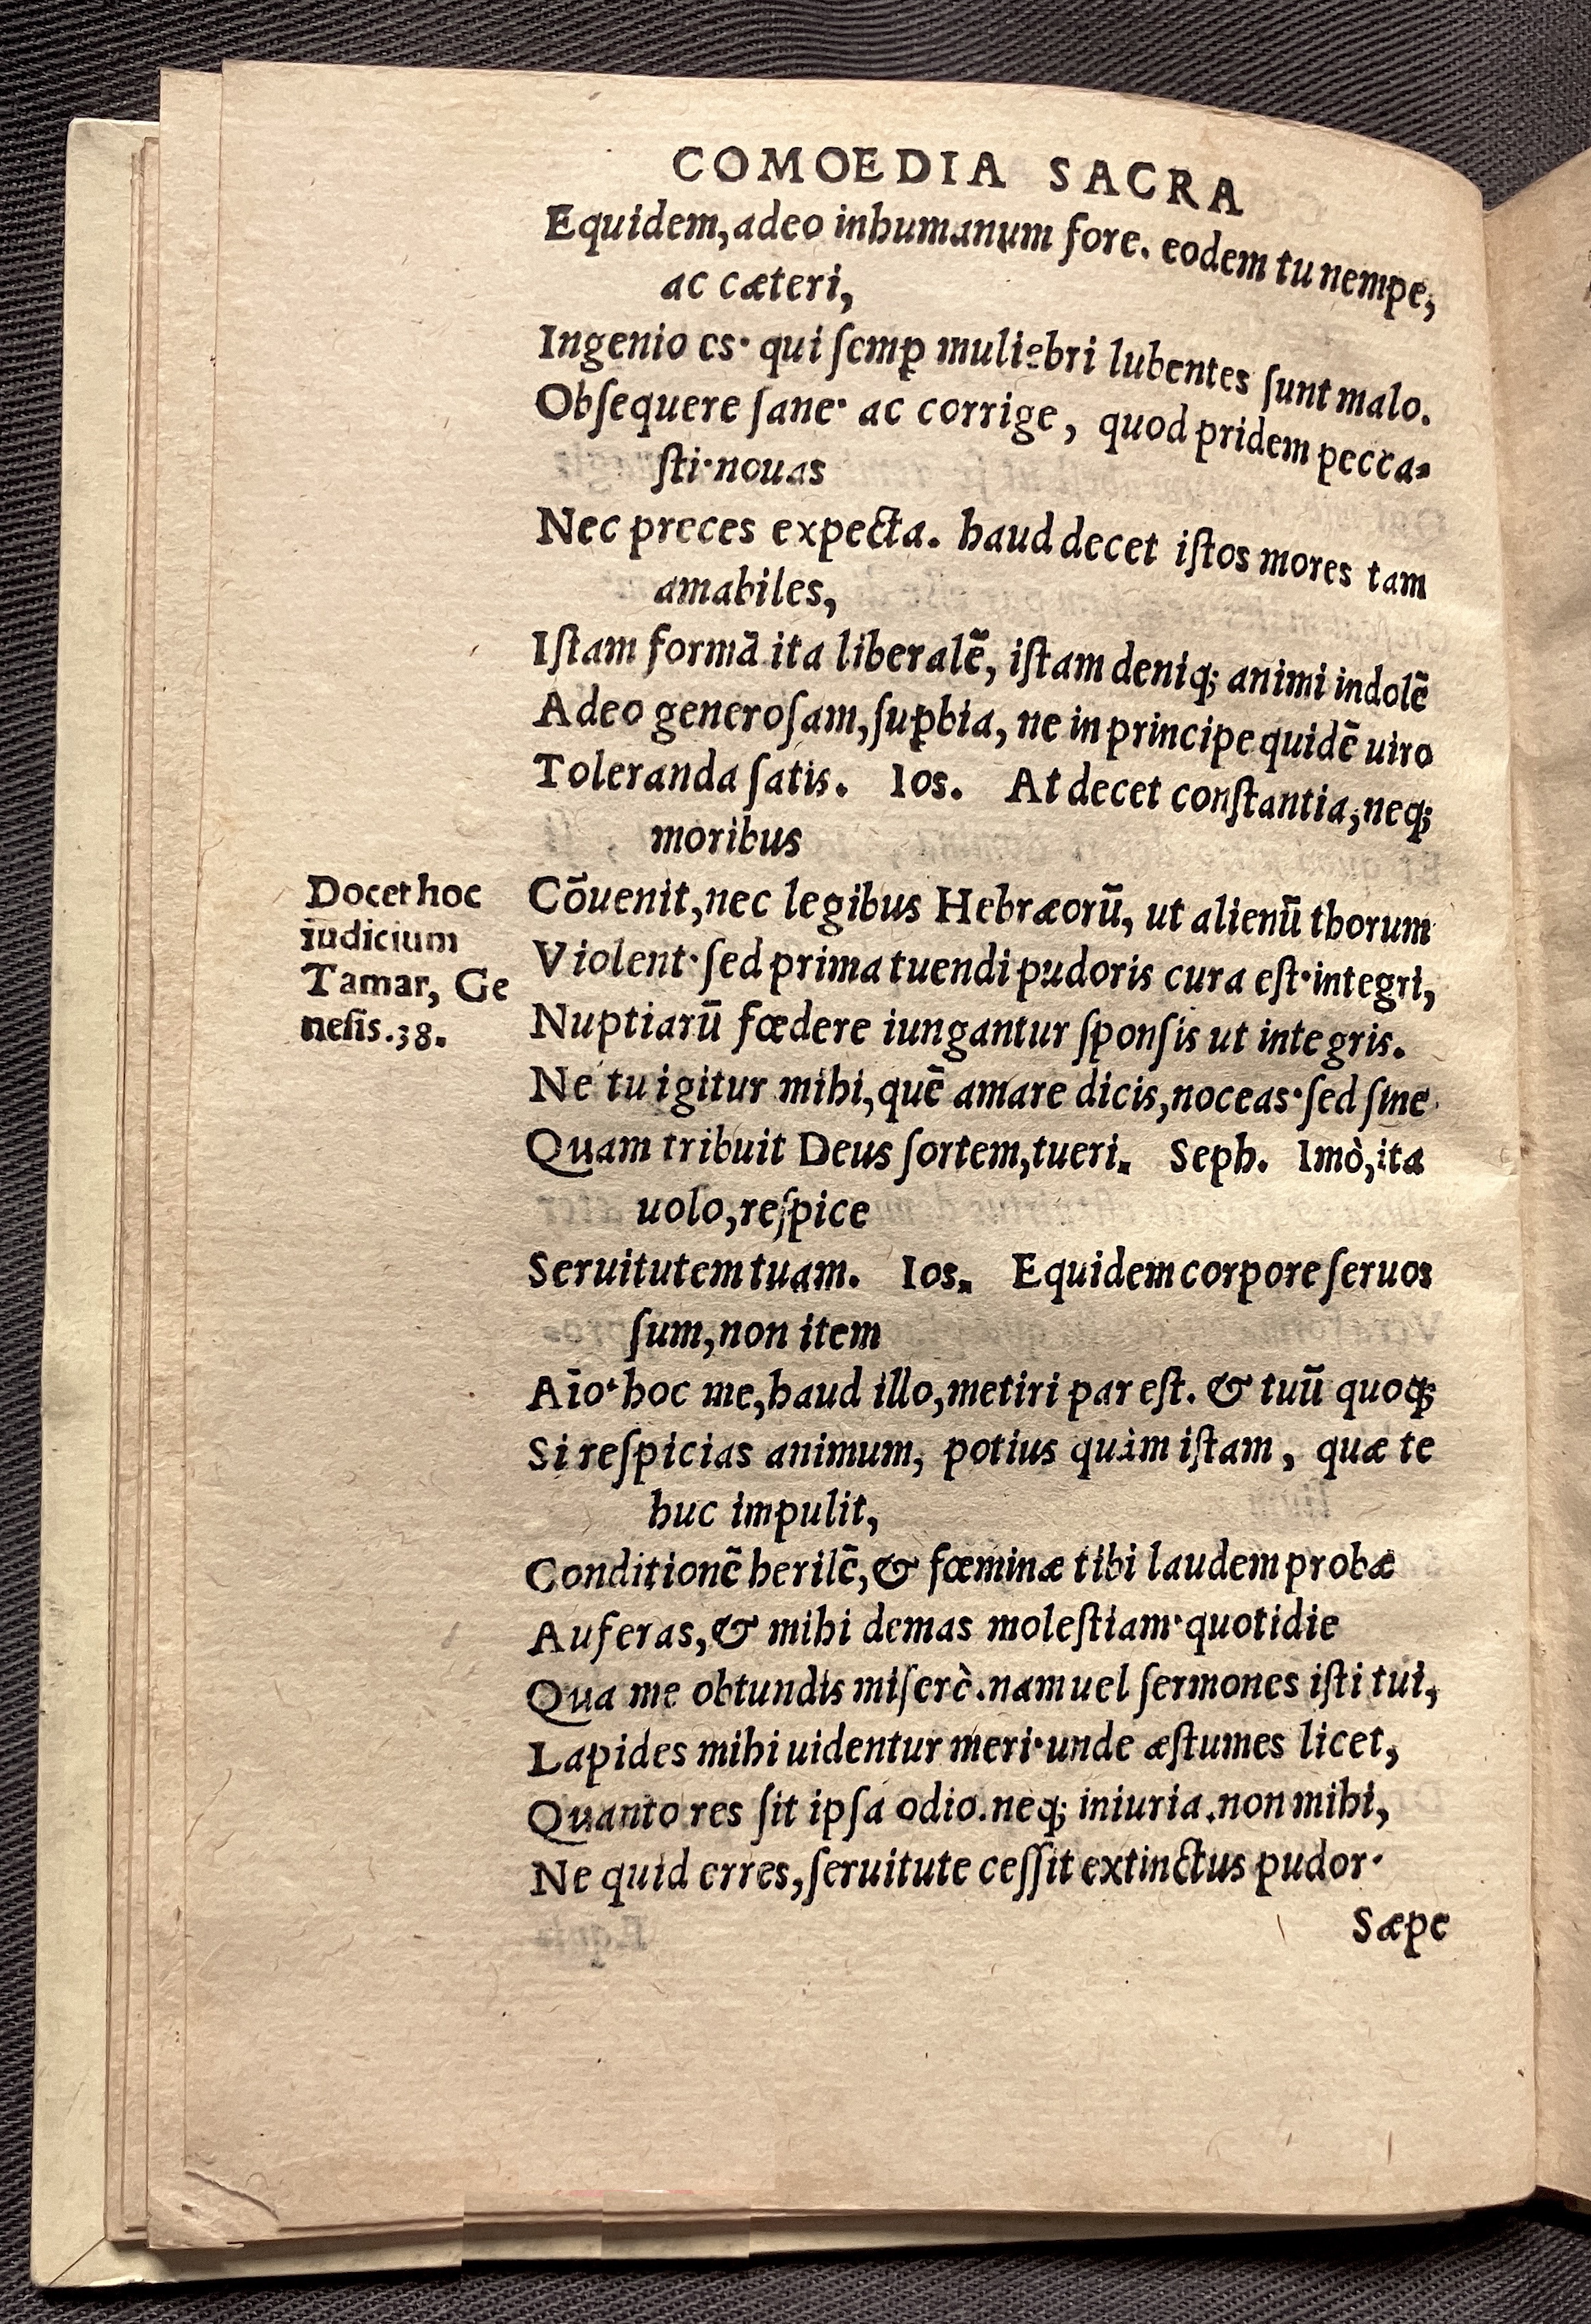 COMOEDIA SACRA
Equidem, adeo inhumanum fore. eodem tu nempe,
ac cæteri,
Ingenio es· qui semꝑ muliebri lubentes sunt malo.
Obsequere sane· ac corrige, quod pridem pecca-
sti· nouas
Nec preces expecta. haud decet istos mores tam
amabiles,
Istam formā ita liberalē, istam deniq; animi indolē
Adeo generosam, suꝑbia, ne in principe quidē uiro
Toleranda satis. Ios. At decet constantia, neq;
moribus
Docet hoc
iudicium
Tamar, Ge
nesis.38.
Cōuenit, nec legibus Hebræorū, ut alienū thorum
Violent· sed prima tuendi pudoris cura est· integri,
Nuptiarū fœdere iungantur sponsis ut integris.
Ne tu igitur mihi, quē amare dicis, noceas· sed sine
Quam tribuit Deus sortem, tueri. Seph. Imò, ita
uolo, respice
Seruitutem tuam. Ios. Equidem corpore seruos
sum, non item
Aīo· hoc me, haud illo, metiri par est. & tuū quoq;
Si respicias animum, potius quàm istam, quæ te
huc impulit,
Conditionē herilē, & fœminæ tibi laudem probæ
Auferas, & mihi demas molestiam· quotidie
Qua me obtundis miserè. nam uel sermones isti tui,
Lapides mihi uidentur meri· unde æstumes licet,
Quanto res sit ipsa odio. neq; iniuria. non mihi,
Ne quid erres, seruitute cessit extinctus pudor·
Sæpe